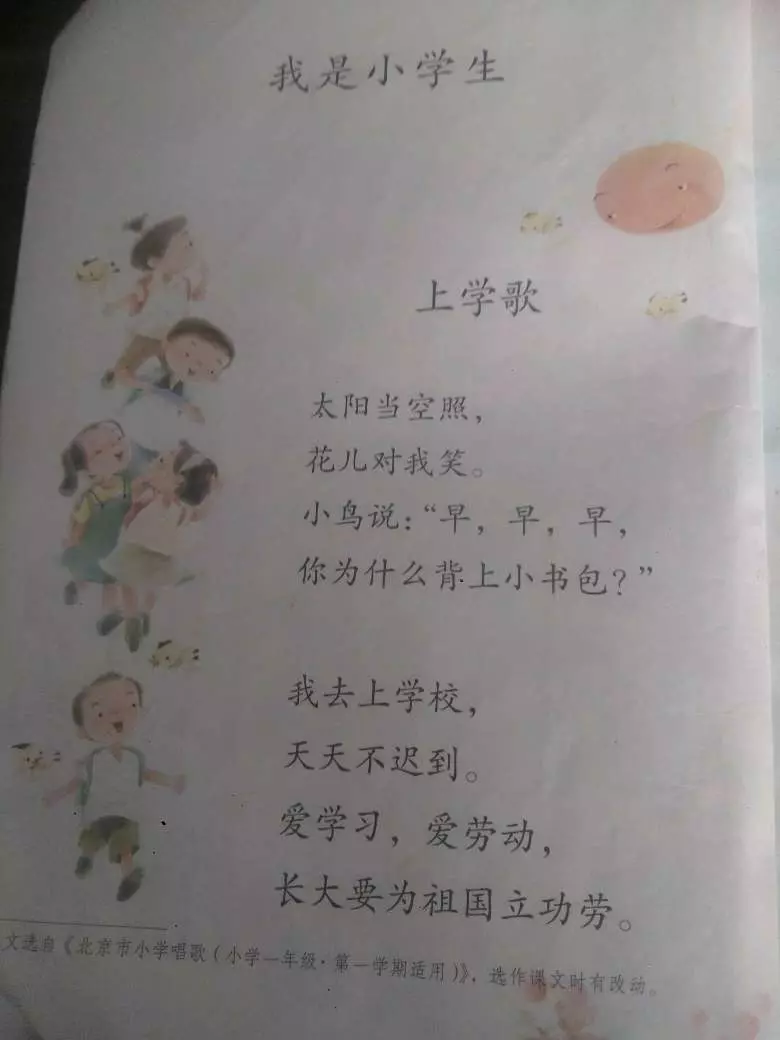 我是小学生
上学歌
太阳当空照，
花儿对我笑。
小鸟说：“早，早，早，
你为什么背上小书包？”
我去上学校，
天天不迟到。
爱学习，爱劳动，
长大要为祖国立功劳。
文选自《北京市小学唱歌（小学一年级·第一学期适用）》，选作课文时有改动。